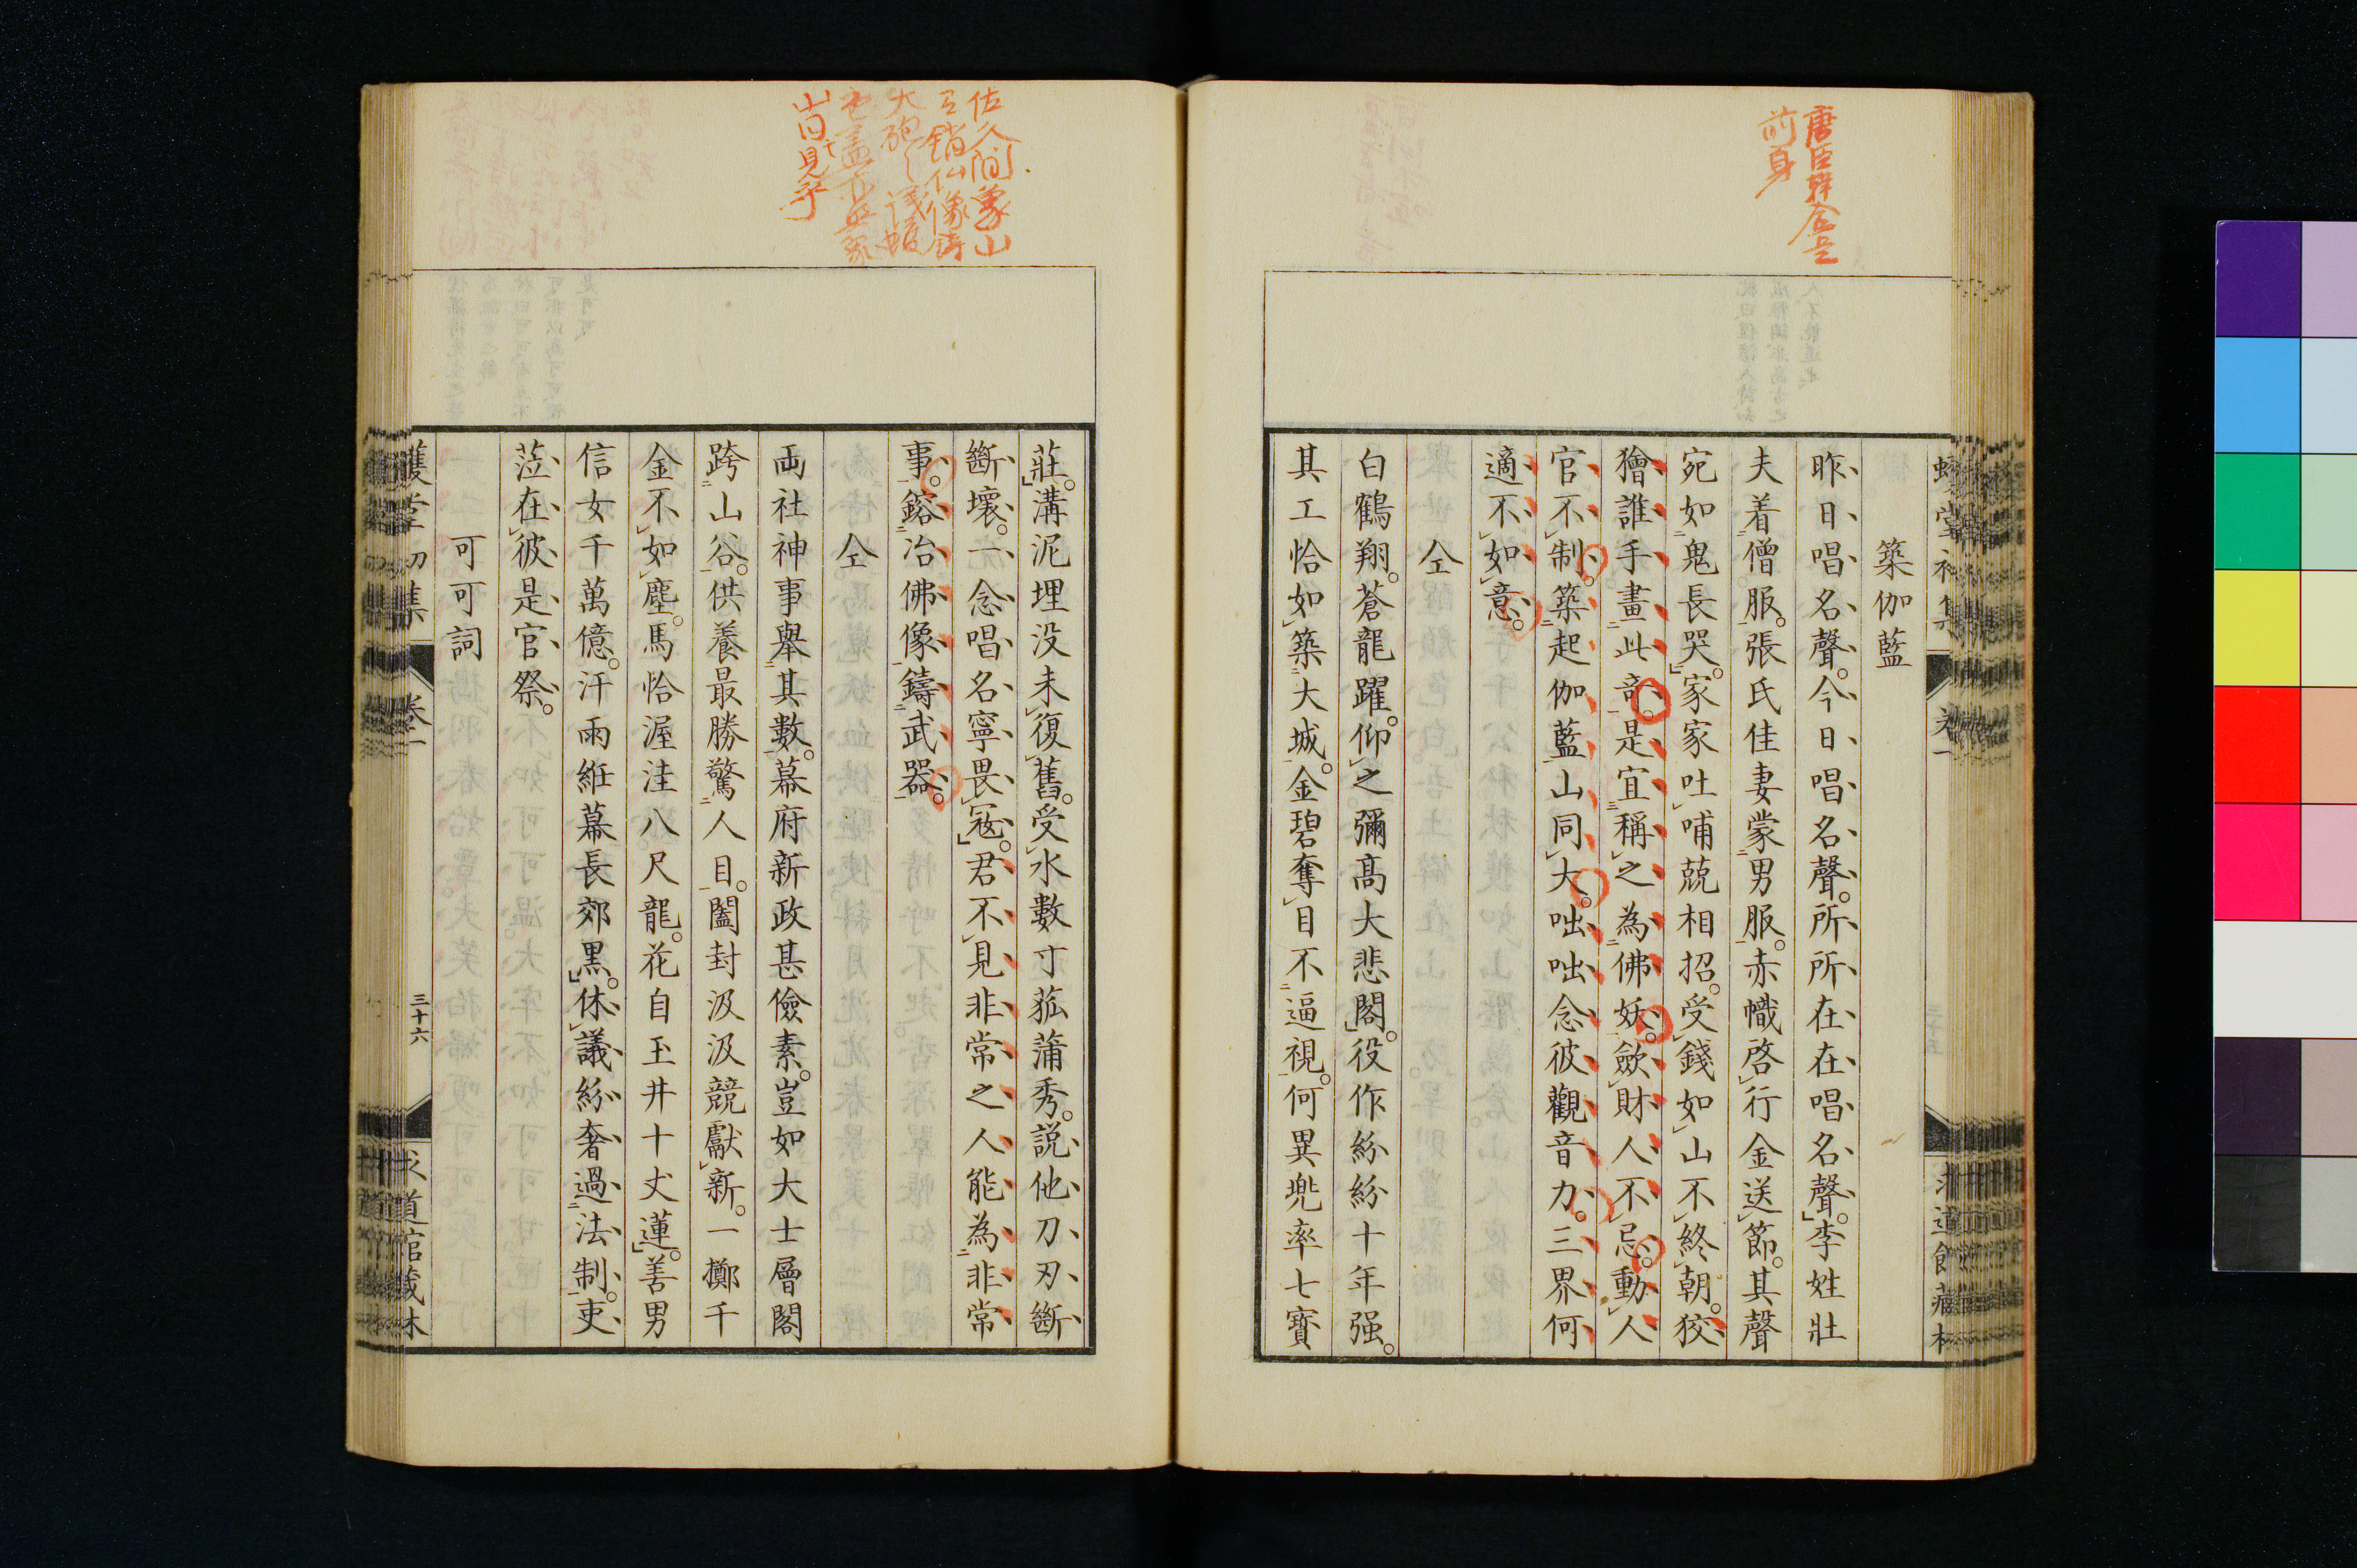 唐臣韓合是
前身
築伽藍
昨日唱名聲。今日唱名聲。所所在在唱名聲。李姓壯
夫着僧服。張氏佳妻蒙男服。赤幟啓行金送節。其聲
宛如鬼長哭。家家吐哺競相招。受錢如山不終朝。狡
獪誰手畫此奇。是宜稱之為佛妖。斂財人不忌。動人
官不制。築起伽藍山同大。咄咄念彼觀音力。三界何
適不如意。
仝
白鶴翔。蒼龍躍。仰之彌高大悲閣。役作紛紛十年强。
其工恰如築大城。金碧奪目不逼視。何異兜率七寶
佐久間象山
大砲
莊。溝泥埋没未復舊。受水數寸菰蒲秀。説他刀刃斷
斷壞。一念唱名寧畏冦。君不見非常之人能為非常
事。鎔冶佛像鑄武器。
仝
両社神事舉其數。幕府新政甚儉素。豈如大士層閣
跨山谷。供養最勝驚人目。闔封汲汲競獻新。一擲千
金不如塵。馬恰渥洼八尺龍。花自玉井十丈蓮。善男
信女千萬億。汗雨絍幕長郊黒。休議紛奢過法制。吏
蒞在彼是官祭。
可可詞
卷一
三十六
道館藏